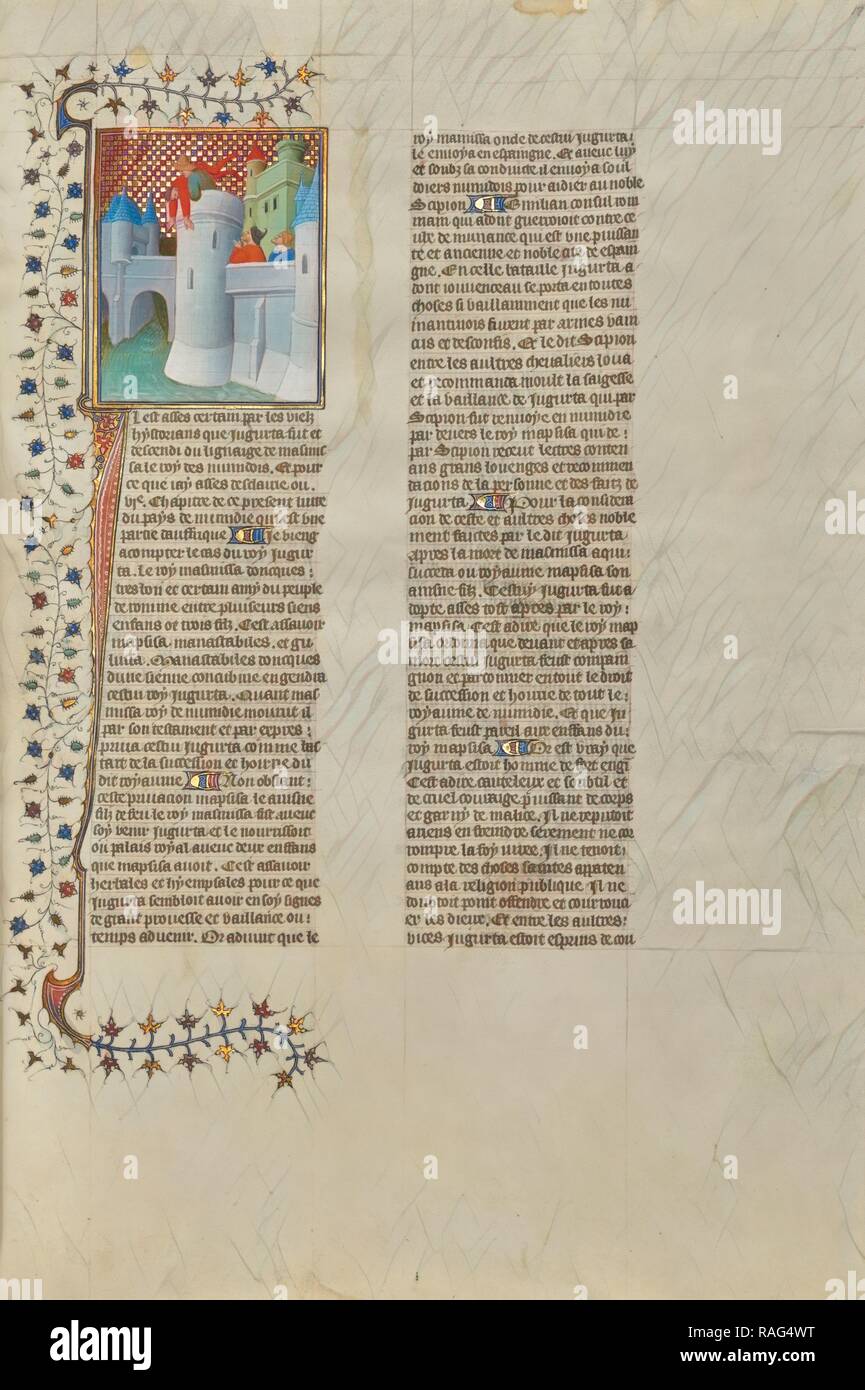 Il est asses certain par les vielz
hystorians que Jugurta fut et
descendi du lignaige de masinis
sa le roy des numidois. Et pour
ce que iay asses desclaire ou
vie. Chapitre de ce present liure
du pays de numidie qui est vne
partie dauffrique Je vieng
a compter le cas du roy Jugur
ta. Le roy masinissa doncques
tresbon et certain amy du peuple
de romme entre pluiseurs siens
enfans ot trois filz. Cest assauoir
mapsisa, manastabiles. et gu
luisa. Manastabiles doncques
dune sienne concubine engendra
cestui roy Jugurta. Quant mas
nissa roy de numidie mourut il
par son testament et par expres
priua cestui Jugurta comme bas
tart de la succession et hoirie du
dit royaume Non obstant
ceste priuacion mapsisa le aisne
filz de feu le roy masinissa fist auenc
soy venir Jugurta et le nourrissoit
ou palais royal auenc deux enffans
que mapsisa auoit. Cest assauoir
herbales et hyempsales pour ce que
Jugurta sembloit auoir en soy signes
de grant prouesse et vaillance ou
temps aduenir. Or aduint que le
roy manissa onde de cestui Jugurta
le enuoya en espaingne. Et auenc luy
et soubz sa conduicte il enuoya soul
doiers numidois pour aidier au noble
Scipion Emilian consul rom
main qui adont guerrioit contre ce
iste de numance qui est vne puissan
te et ancienne et noble cite de espain
gne. En celle bataille Jugurta a
dont iouuenceau se porta en toutes
choses si vaillamment que les nu
mantinois furent par armes vain
cus et desconfis. Et le dit Scipion
entre les aultres cheualiers loua
et recommanda moult la saigesse
et la vaillance de Jugurta qui par
Scipion fut renuoye en numidie
par deuers le roy mapsisa qui de
par Scipion receut lectres conten
ans grans louenges et recommen
dacions de la personne et des faitz de
Jugurta Pour la considera
cion de ceste et aultres choses noble
ment faictes par le dit Jugurta
apres la mort de masinissa a qui
succeda ou royaume mapsisa son
aisne filz. Cestuy Jugurta fut a
dopte asses tost apres par le roy
mapsisa. Cest adire que le roy map
sisa ordonna que deuant et apres sa
mort cestui Jugurta feust compain
gnon et parconnier en tout le droit
de succession et hoirie de tout le
royaume de numidie. Et que Ju
gurta feust pareil aux enffans du
roy mapsisa Or est vray que
Jugurta estoit homme de fort engin
Cest adire cauteleux et soubtil et
de cruel couraige puissant de corps
et garny de malice. Il ne reputoit
a riens enfraindre serement ne cor
rompre la foy iuree. Il ne tenoit
compte des choses saintes apparten
ans a la religion publique Il ne
doubtoit point offendre et courrouc
er les dieux. Et entre les aultres
vices Jugurta estoit esprins de cou
alamy
Image ID: RAG4WT
www.alamy.com